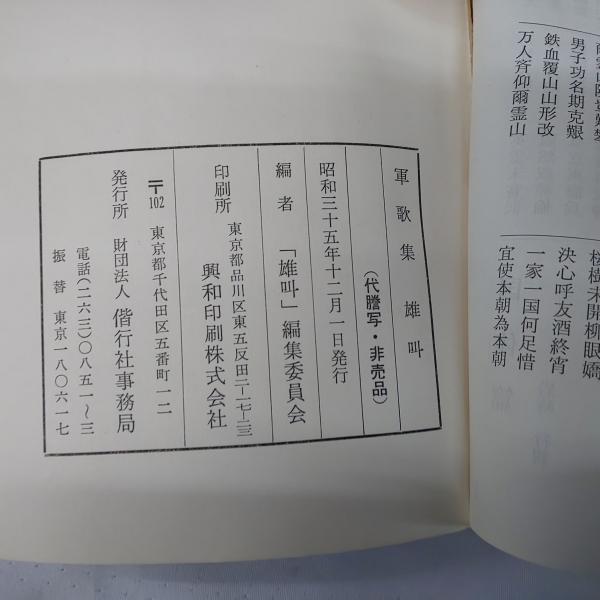 男子功名期克艱
鉄血覆山山形改
万人斉仰爾霊山
桜樹未開柳眼嬌
決心呼友酒終宵
一家一国何足惜
宜使本朝為本朝
軍歌集 雄叫
(代謄写・非売品)
昭和三十五年十二月一日発行
編者 「雄叫」編集委員会
印刷所 東京都品川区東五反田二-一七-二三
興和印刷株式会社
〒102 東京都千代田区五番町一二
発行所 財団法人 偕行社事務局
電話(二六三)〇八五一~三
振替 東京一八〇六一七